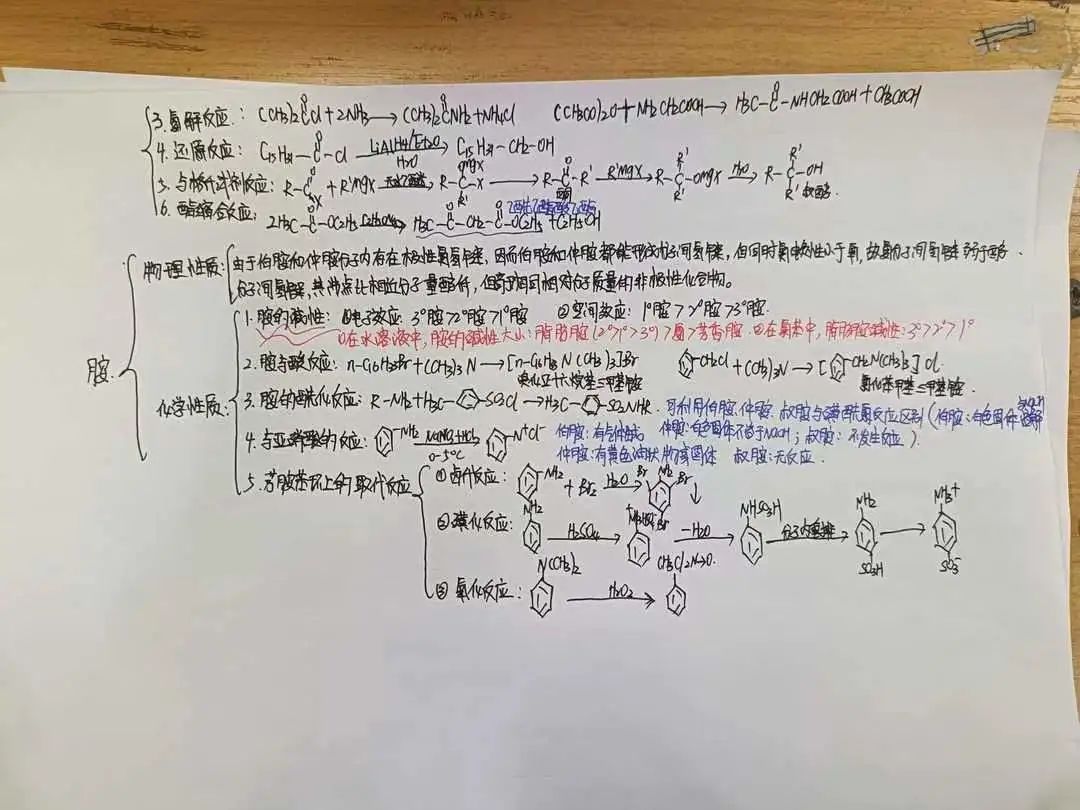 3. 氨解反应: (CH3)2CCl + 2NH3 → (CH3)2CNH2 + NH4Cl (CH3CO)2O + NH2CH2COOH → H3C-C-NHCH2COOH + CH3COOH
4. 还原反应: C15H31-C-Cl LiAlH4/Et2O H2O → C15H31-CH2-OH
5. 与格氏试剂反应: R-C + R'MgX 无水乙醚 → R-C-X OMgX R' → R-C-R' O 酮 R'MgX → R-C-OMgX R' R' H2O → R-C-OH R' R' 叔醇.
6. 酯缩合反应: 2H3C-C-OC2H5 C2H5ONa → H3C-C-CH2-C-OC2H5 + C2H5OH 乙酰乙酸乙酯
胺
物理性质: 由于伯胺和仲胺分子内存在极性氮氢键, 因而伯胺和仲胺都能形成分子间氢键, 但同时氮电负性小于氧, 故氨分子间氢键弱于醇
分子间氢键, 其沸点比相近分子量醇低, 但高于相同相对分子质量的非极性化合物。
化学性质:
1. 胺的碱性: ①电子效应: 3°胺>2°胺>1°胺 ②空间效应: 1°胺>2°胺>3°胺.
①在水溶液中, 胺的碱性大小: 脂肪胺(2°>1°>3°)>氨>芳香胺. ②在氯苯中, 脂肪胺碱性: 3°>2°>1°
2. 胺与酸反应: n-C16H33Br + (CH3)3N → [n-C16H33N(CH3)3]Br CH2Cl + (CH3)3N → [CH2N(CH3)3]Cl
溴化正十六烷基三甲基胺 氯化苯甲基三甲基胺.
3. 胺的酰化反应: R-NH2 + H3C- -SO2Cl → H3C- -SO2NHR. 可利用伯胺、仲胺、叔胺与磺酰氯反应区别(伯胺: 白色固体
仲胺: 白色固体不溶于NaOH; 叔胺: 不发生反应).
4. 与亚硝酸的反应: NH2 NaNO2+HCl 0-5℃ N+Cl- 伯胺: 有气体放出
仲胺: 有黄色油状物或固体 叔胺: 无反应.
5. 芳胺苯环上的取代反应
①卤代反应: NH2 + Br2 H2O → NH2 Br Br Br ↓
②磺化反应: NH2 H2SO4 → -H2O → NHSO3H 分子内重排 → NH2 SO3H → NH3+ SO3-
③氧化反应: N(CH3)2 H2O2 → (CH3)2N→O.